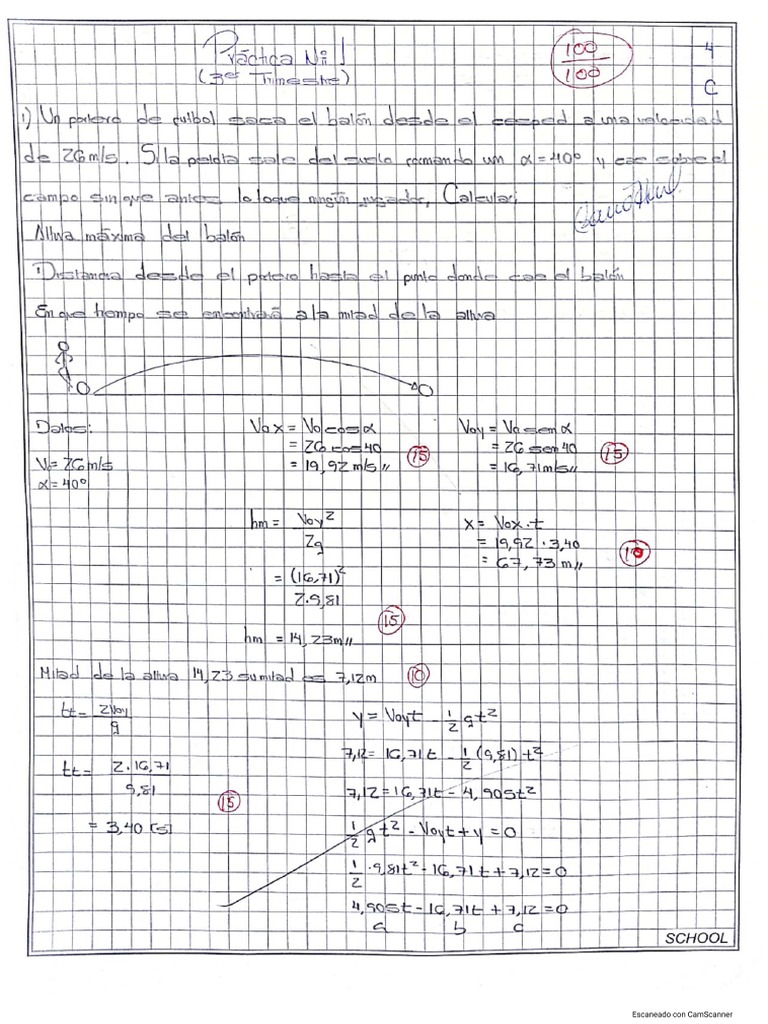 Práctica Nº 1
(3er Trimestre)
100
100
4
C
1) Un portero de futbol saca el balón desde el cesped a una velocidad
de 26 m/s. Si la pelota sale del suelo formando un α = 40° y cae sobre el
campo sin que antes lo toque ningún jugador, Calcular:
Altura máxima del balón
Distancia desde el portero hasta el punto donde cae el balón
En que tiempo se encontrará a la mitad de la altura
Datos:
Vo = 26 m/s
α = 40°
Vox = Vo cos α
= 26 cos 40
= 19,92 m/s //
15
Voy = Vo sen α
= 26 sen 40
= 16,71 m/s //
15
hm = Voy²
2g
= (16,71)²
2 · 9,81
hm = 14,23 m //
15
x = Vox · t
= 19,92 · 3,40
= 67,73 m //
10
Mitad de la altura 14,23 su mitad es 7,12 m
10
tt = 2Voy
g
tt = 2 · 16,71
9,81
= 3,40 [s]
15
y = Voyt - 1/2 gt²
7,12 = 16,71t - 1/2 (9,81) · t²
7,12 = 16,71t - 4,905t²
1/2 gt² - Voyt + y = 0
1/2 · 9,81t² - 16,71t + 7,12 = 0
4,905t - 16,71t + 7,12 = 0
a b c
SCHOOL
Escaneado con CamScanner